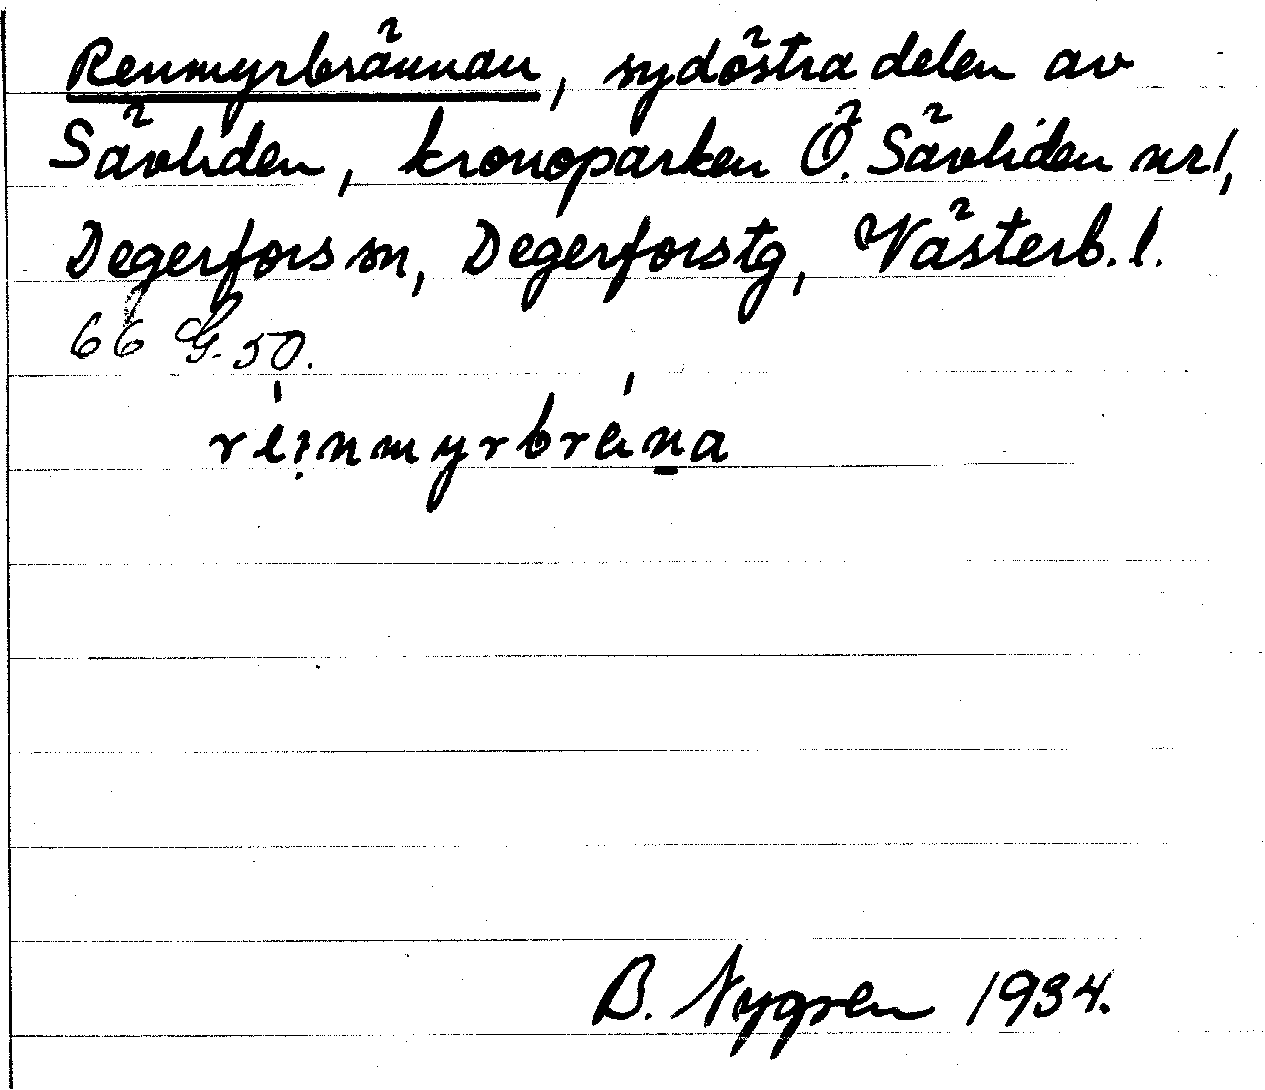 Renmyrbrännan, sydöstra delen av
Sävliden, kronoparken Ö. Sävliden nr 1,
Degerfors sn, Degerfors tg, Västerb. l.
66 G. 50.
B. Nygren 1934.